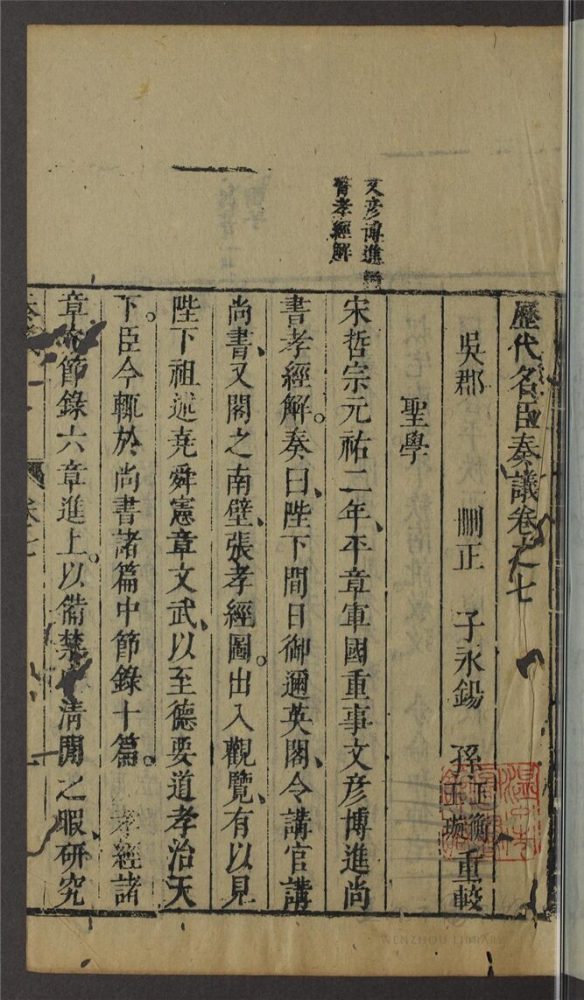 歷代名臣奏議卷之七
吳郡 刪正 子永錫 孫玉衡 玉璇 重較
聖學
文彥博進尚
書孝經解
宋哲宗元祐二年、平章軍國重事文彥博進尚
書孝經解。奏曰、陛下間日御邇英閣、令講官講
尚書、又閣之南壁、張孝經圖。出入觀覽、有以見
陛下祖述堯舜憲章文武、以至德要道孝治天
下。臣今輒於尚書諸篇中節錄十篇。孝經諸
章內節錄六章進上。以備禁 清閒之暇、研究
卷七